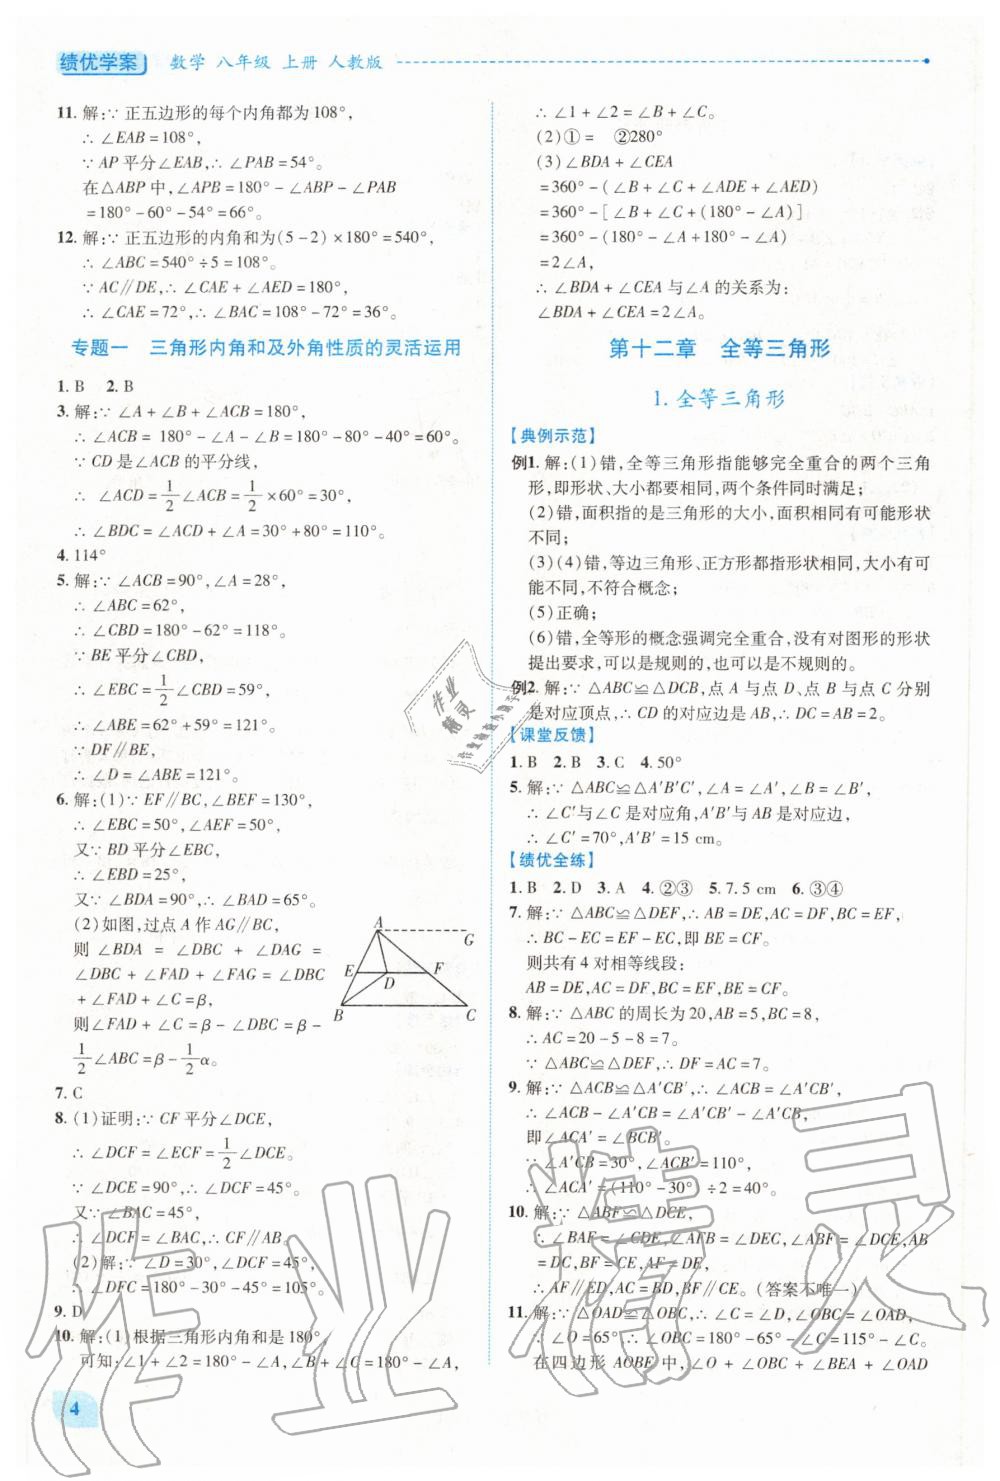 绩优学案 数学 八年级 上册 人教版
11. 解:∵ 正五边形的每个内角都为108°,
∴ ∠EAB=108°,
∵ AP平分∠EAB,∴ ∠PAB=54°。
在△ABP中,∠APB=180°-∠ABP-∠PAB
=180°-60°-54°=66°。
12. 解:∵ 正五边形的内角和为(5-2)×180°=540°,
∴ ∠ABC=540°÷5=108°。
∵ AC∥DE,∴ ∠CAE+∠AED=180°,
∴ ∠CAE=72°,∴ ∠BAC=108°-72°=36°。
专题一 三角形内角和及外角性质的灵活运用
1. B 2. B
3. 解:∵ ∠A+∠B+∠ACB=180°,
∴ ∠ACB= 180°-∠A-∠B=180°-80°-40°=60°。
∵ CD是∠ACB的平分线,
∴ ∠ACD=1/2∠ACB=1/2×60°=30°,
∴ ∠BDC=∠ACD+∠A=30°+80°=110°。
4. 114°
5. 解:∵ ∠ACB=90°,∠A=28°,
∴ ∠ABC=62°,
∴ ∠CBD=180°-62°=118°。
∵ BE平分∠CBD,
∴ ∠EBC=1/2∠CBD=59°,
∴ ∠ABE=62°+59°=121°。
∵ DF∥BE,
∴ ∠D=∠ABE=121°。
6. 解:(1)∵ EF∥BC,∠BEF=130°,
∴ ∠EBC=50°,∠AEF=50°,
又∵ BD平分∠EBC,
∴ ∠EBD=25°,
又∵ ∠BDA=90°,∴ ∠BAD=65°。
(2)如图,过点A作AG∥BC,
则 ∠BDA = ∠DBC + ∠DAG =
∠DBC+∠FAD+∠FAG=∠DBC
+∠FAD+∠C=β,
则∠FAD+∠C=β-∠DBC=β-
1/2∠ABC=β-1/2α。
A G
E D F
B C
7. C
8. (1)证明:∵ CF平分∠DCE,
∴ ∠DCF=∠ECF=1/2∠DCE。
∵ ∠DCE=90°,∴ ∠DCF=45°。
又∵ ∠BAC=45°,
∴ ∠DCF=∠BAC,∴ CF∥AB。
(2)解:∵ ∠D=30°,∠DCF=45°,
∴ ∠DFC=180°-30°-45°=105°。
9. D
10. 解:(1)根据三角形内角和是180°,
可知:∠1+∠2=180°-∠A,∠B+∠C=180°-∠A,
4
∴ ∠1+∠2=∠B+∠C。
(2)①= ②280°
(3)∠BDA+∠CEA
=360°-(∠B+∠C+∠ADE+∠AED)
=360°-[∠B+∠C+(180°-∠A)]
=360°-(180°-∠A+180°-∠A)
=2∠A,
∴ ∠BDA+∠CEA与∠A的关系为:
∠BDA+∠CEA=2∠A。
第十二章 全等三角形
1.全等三角形
【典例示范】
例1. 解:(1)错,全等三角形指能够完全重合的两个三角
形,即形状、大小都要相同,两个条件同时满足;
(2)错,面积指的是三角形的大小,面积相同有可能形状
不同;
(3)(4)错,等边三角形、正方形都指形状相同,大小有可
能不同,不符合概念;
(5)正确;
(6)错,全等形的概念强调完全重合,没有对图形的形状
提出要求,可以是规则的,也可以是不规则的。
例2. 解:∵ △ABC≌△DCB,点A与点D、点B与点C分别
是对应顶点,∴ CD的对应边是AB,∴ DC=AB=2。
【课堂反馈】
1. B 2. B 3. C 4. 50°
5. 解:∵ △ABC≌△A′B′C′,∠A=∠A′,∠B=∠B′,
∴ ∠C′与∠C是对应角,A′B′与AB是对应边,
∴ ∠C′=70°,A′B′=15 cm。
【绩优全练】
1. B 2. D 3. A 4. ②③ 5. 7.5 cm 6. ③④
7. 解:∵ △ABC≌△DEF,∴ AB=DE,AC=DF,BC=EF,
∴ BC-EC=EF-EC,即BE=CF。
则共有4对相等线段:
AB=DE,AC=DF,BC=EF,BE=CF。
8. 解:∵ △ABC的周长为20,AB=5,BC=8,
∴ AC=20-5-8=7。
∵ △ABC≌△DEF,∴ DF=AC=7。
9. 解:∵ △ACB≌△A′CB′,∴ ∠ACB=∠A′CB′,
∴ ∠ACB-∠A′CB=∠A′CB′-∠A′CB,
即∠ACA′=∠BCB′。
∵ ∠A′CB=30°,∠ACB′=110°,
∴ ∠ACA′=(110°-30°)÷2=40°。
10. 解:∵ △ABF≌△DCE,
∴ ∠BAF=∠CDE,∠AFB=∠DEC,∠ABF=∠DCE,AB
=DC,BF=CE,AF=DE,
∴ AF∥ED,AC=BD,BF∥CE。(答案不唯一)
11. 解:∵ △OAD≌△OBC,∴ ∠C=∠D,∠OBC=∠OAD。
∵ ∠O=65°,∴ ∠OBC=180°-65°-∠C=115°-∠C。
在四边形AOBE中,∠O+∠OBC+∠BEA+∠OAD
作业精灵
作业精灵